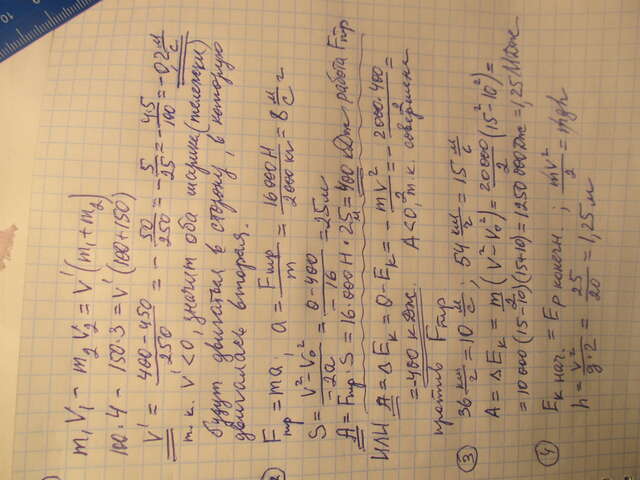 m₁V₁ - m₂V₂ = V'(m₁+m₂)
100·4 - 150·3 = V'(100+150)
V' = (400-450)/250 = -50/250 = -5/25 = -0,2 м/с
т.к. V' < 0, значит оба шарика (тележки)
будут двигаться в сторону, в которую
двигалась вторая.
Fтр = ma; a = Fтр/m = 16000Н/2000кг = 8 м/с²
S = (V²-V₀²)/(-2a) = (0-400)/(-16) = 25м
A = Fтр·S = 16000Н·25м = 400 кДж работа Fтр
ИЛИ A = ΔEк = 0 - Eк = -mV²/2 = -2000·400/2 =
= 400 кДж. A<0, т.к. совершена
против Fтр
③ 36 км/ч = 10 м/с; 54 км/ч = 15 м/с
A = ΔEк = m/2 (V²-V₀²) = 20000/2 (15²-10²) =
= 10000(15-10)(15+10) = 1250000Дж = 1,25 МДж
④ Eк нач. = Eр конечн.; mV²/2 = mgh
h = V²/g·2 = 25/20 = 1,25 м